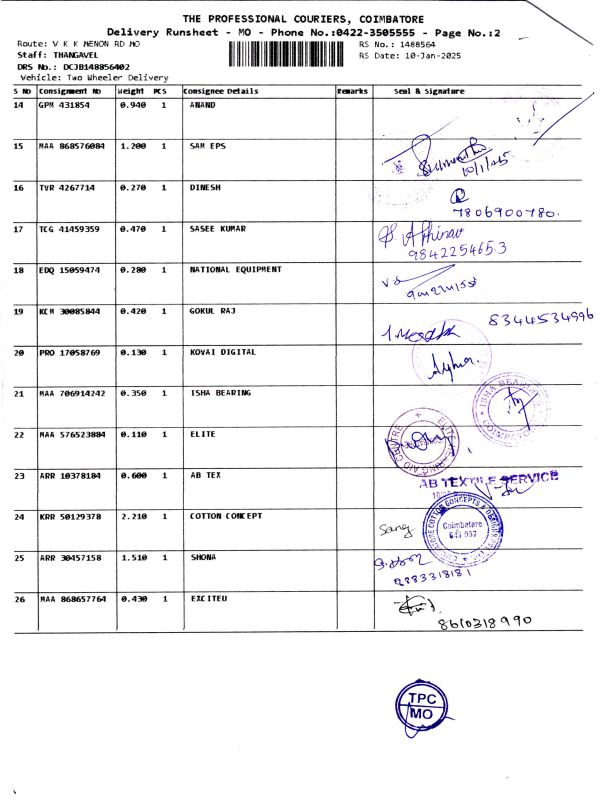 THE PROFESSIONAL COURIERS, COIMBATORE
Delivery Runsheet - MO - Phone No.:0422-3505555 - Page No.:2
Route: V K K MENON RD MO RS No.: 1488564
Staff: THANGAVEL RS Date: 10-Jan-2025
DRS No.: DCJB148856402
Vehicle: Two Wheeler Delivery
S NO Consignment No Weight PCS Consignee Details Remarks Seal & Signature
14 GPM 431854 0.940 1 ANAND
15 MAA 868576084 1.200 1 SAM EPS
10/1/25
16 TVR 4267714 0.270 1 DINESH
7806900780.
17 TCG 41459359 0.470 1 SASEE KUMAR
9842254653
18 EDQ 15059474 0.280 1 NATIONAL EQUIPMENT
19 KCM 30085844 0.420 1 GOKUL RAJ
8344534996
20 PRO 17058769 0.130 1 KOVAI DIGITAL
21 MAA 706914242 0.350 1 ISHA BEARING
ISHA BEARING
COIMBATORE
22 MAA 576523884 0.110 1 ELITE
ELITE HEARING AID CENTRE
23 ARR 10378184 0.600 1 AB TEX
AB TEXTILE SERVICE
24 KRR 50129378 2.210 1 COTTON CONCEPT
COTTON CONCEPTS &
Coimbatore
641 037
25 ARR 30457158 1.510 1 SHONA
9883318181
26 MAA 868657764 0.430 1 EXCITEU
8610318990
TPC
MO